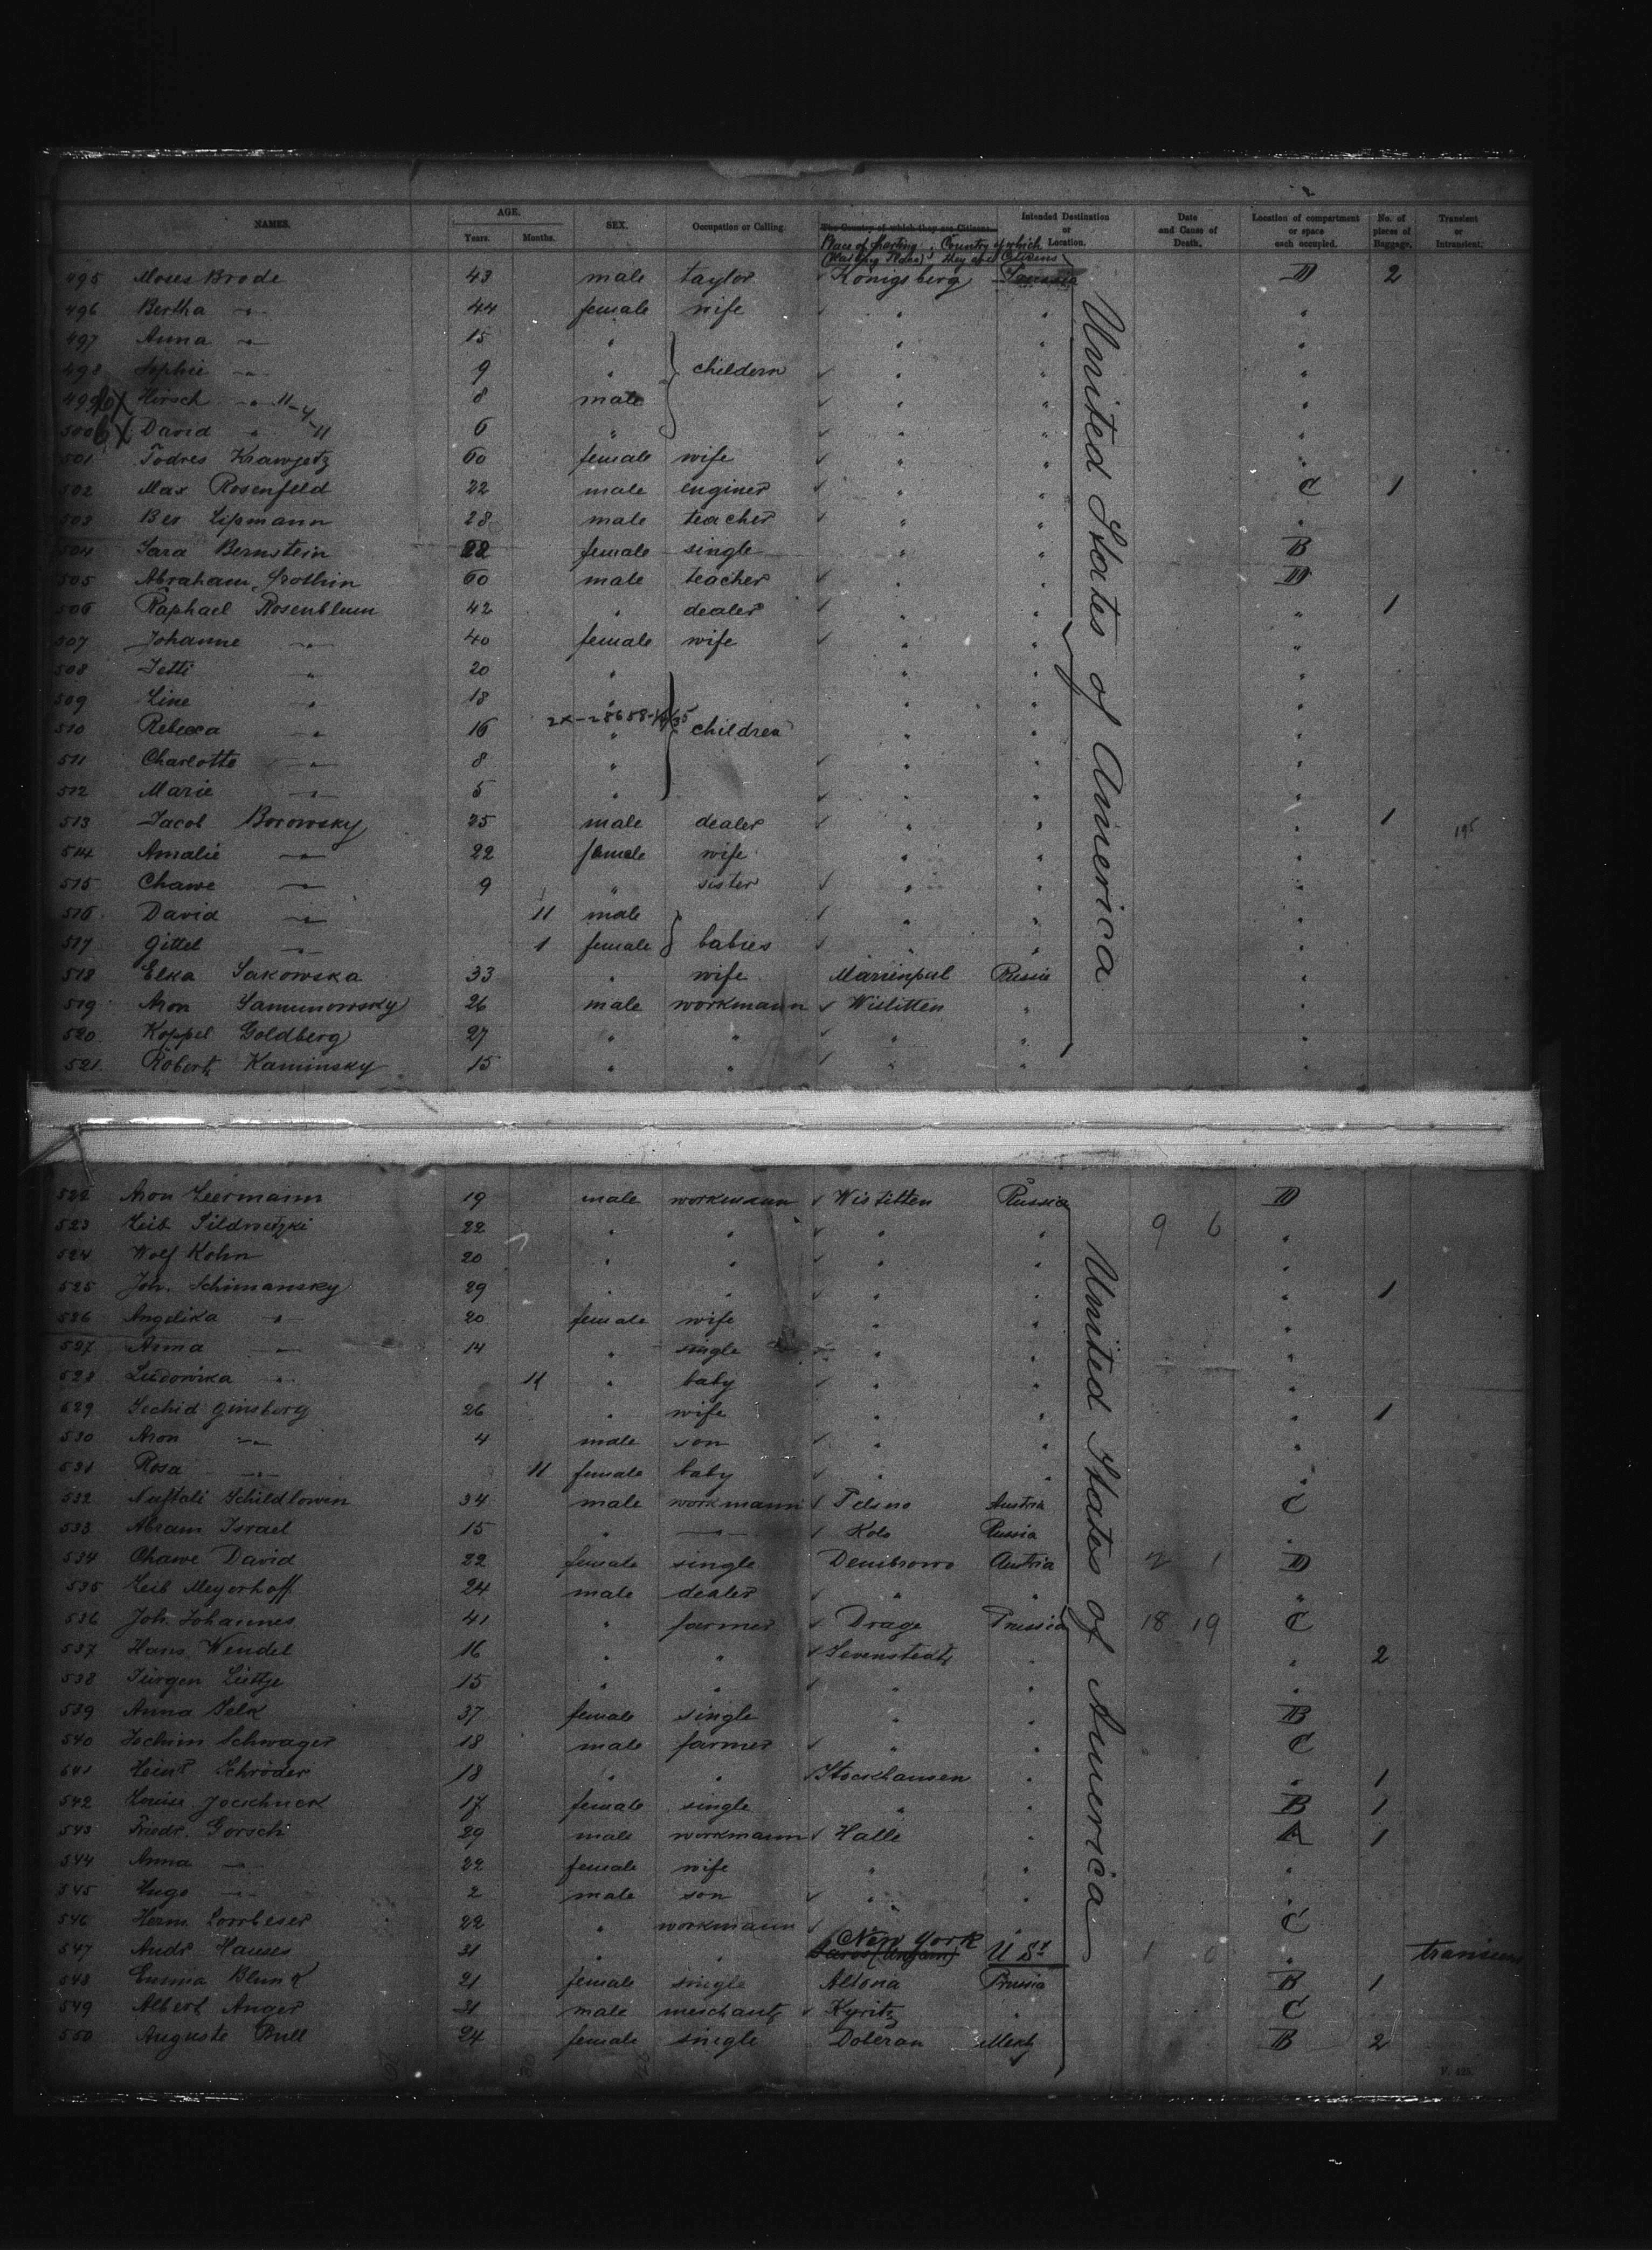 NAMES. AGE. Years. Months. SEX. Occupation or Calling. The Country of which they are Citizens. Intended Destination or Location. Date and Cause of Death. Location of compartment or space each occupied. No. of pieces of Baggage. Transient or Intransient.
Place of starting Country of which they are Citizens
495 Moses Brode 43 male taylor ✓ Königsberg Prussia D 2
496 Bertha " 44 female wife ✓ " " "
497 Anna " 15 " " " "
498 Sophie " 9 " childern ✓ " " "
499 Hirsch " 8 male ✓ " " "
500 David " 6 " ✓ " " "
501 Todres Krawjetz 60 female wife ✓ " " "
502 Max Rosenfeld 22 male enginer ✓ " " C 1
503 Ber Lipmann 28 male teacher ✓ " " "
504 Sara Bernstein 22 female single " " B
505 Abraham 60 male teacher ✓ " " D
506 Raphael Rosenblum 42 " dealer ✓ " " " 1
507 Johanne " 40 female wife ✓ " " "
508 Jetti " 20 " " " "
509 Line " 18 " " " "
510 Rebecca " 16 " children " " "
511 Charlotte " 8 " ✓ " " "
512 Marie " 5 " ✓ " " "
513 Jacob Borowsky 25 male dealer ✓ " " " 1
514 Amalie " 22 female wife " " "
515 Chawe " 9 " sister ✓ " " "
516 David " 11 male ✓ " " "
517 Gittel " 1 female babies ✓ " " "
518 Elka Sakowska 33 " wife Marienpol Russia "
519 Aron Samunowsky 26 male workmann ✓ Wistitten " "
520 Koppel Goldberg 27 " " ✓ " " "
521 Robert Kaminsky 15 " " ✓ " " "
United States of America
522 Aron Leermann 19 male workmann ✓ Wistitten Russia D
523 Leib 22 " " ✓ " " 9 6 "
524 Wolf Kohn 20 " " ✓ " " "
525 Joh. Schimansky 29 " " ✓ " " " 1
526 Angelika " 20 female wife " " "
527 Anna " 14 " single " " "
528 Ludowika " 11 " baby ✓ " " "
529 Ginsberg 26 " wife " " " 1
530 Aron " 4 male son ✓ " " "
531 Rosa " 11 female baby ✓ " " "
532 Naftali Schildlowen 34 male workmann ✓ Austria C
533 Abram Israel 15 " " ✓ Kolo Russia "
534 Chawe David 22 female single Dembrowo Austria 2 1 D
535 Leib Meyerhoff 24 male dealer ✓ " " "
536 Joh. Johannes 41 " farmer ✓ Drage Prussia 18 19 C
537 Hans Wendel 16 " " ✓ " " 2
538 Jürgen Lüttje 15 " " ✓ " " "
539 Anna Selk 37 female single " " B
540 Jochim Schwager 18 male farmer ✓ " " C
541 Heinr. Schröder 18 " " ✓ Stockhausen " " 1
542 Louise 17 female single " " B 1
543 Friedr. Gorsch 29 male workmann ✓ Halle " A 1
544 Anna " 22 female wife " " "
545 Hugo " 2 male son ✓ " " "
546 Herm. Lorrbeser 22 " workmann ✓ " " C
547 Andr. Hauses 31 " " New York U St 1 0 " transient
548 Emma Blunk 21 female single Altona Prussia B 1
549 Albert Anger 31 male merchant ✓ Kyritz " C
550 Auguste Bull 24 female single Doberan Meckl B 2
United States of America